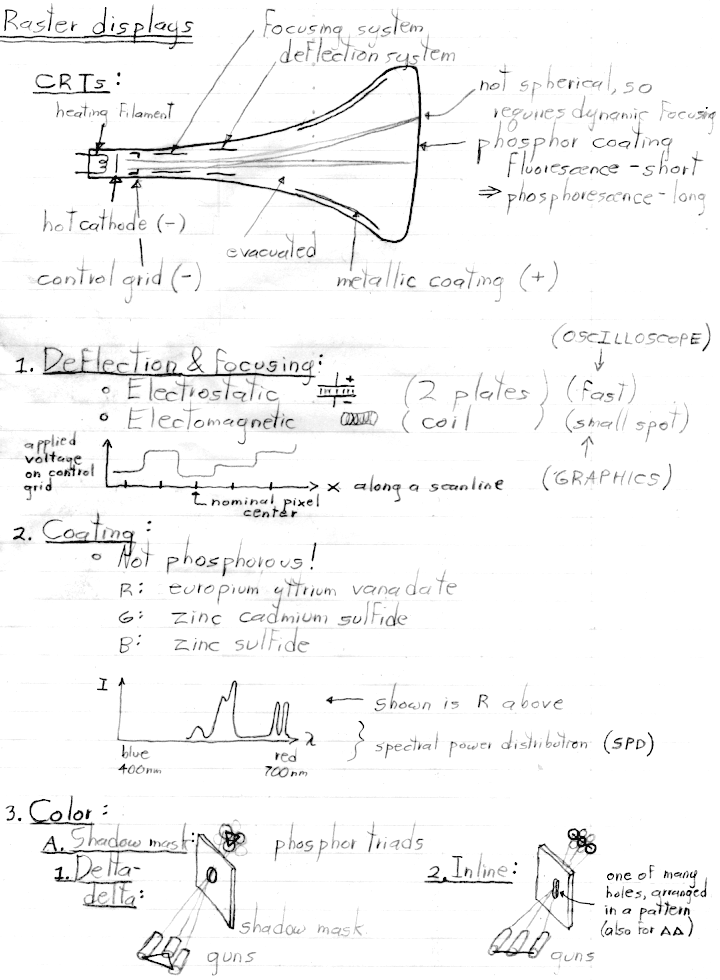 Raster displays
focusing system
deflection system
CRTs:
heating filament
not spherical, so
requires dynamic focusing
phosphor coating
fluorescence - short
⇒ phosphorescence - long
hot cathode (-)
evacuated
control grid (-)
metallic coating (+)
(OSCILLOSCOPE)
1. Deflection & Focusing:
o Electrostatic + - (2 plates) (fast)
o Electomagnetic (coil) (small spot)
applied
voltage
on control
grid
x along a scanline
(GRAPHICS)
nominal pixel
center
2. Coating:
o Not phosphorous!
R: europium yttrium vanadate
G: zinc cadmium sulfide
B: zinc sulfide
I
← shown is R above
λ
} spectral power distribution (SPD)
blue
400nm
red
700nm
3. Color:
A. Shadow mask:
phosphor triads
1. Delta-
delta:
2. Inline:
one of many
holes, arranged
in a pattern
(also for ΔΔ)
shadow mask
guns
guns